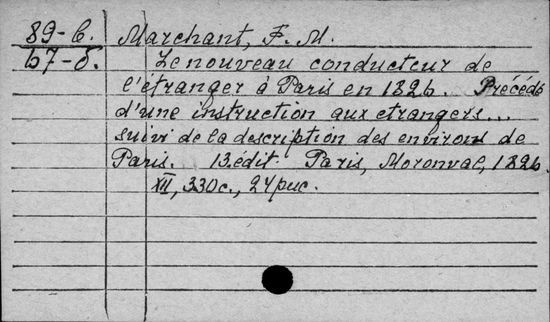 89-6.
67-5.
Marchant, F. M.
Le nouveau conducteur de
l'étranger à Paris en 1826. Précédé
d'une instruction aux etrangers...
suivi de la description des environs de
Paris. 13 édit. Paris, Moronval, 1826.
XII, 330 c., 24 рис.